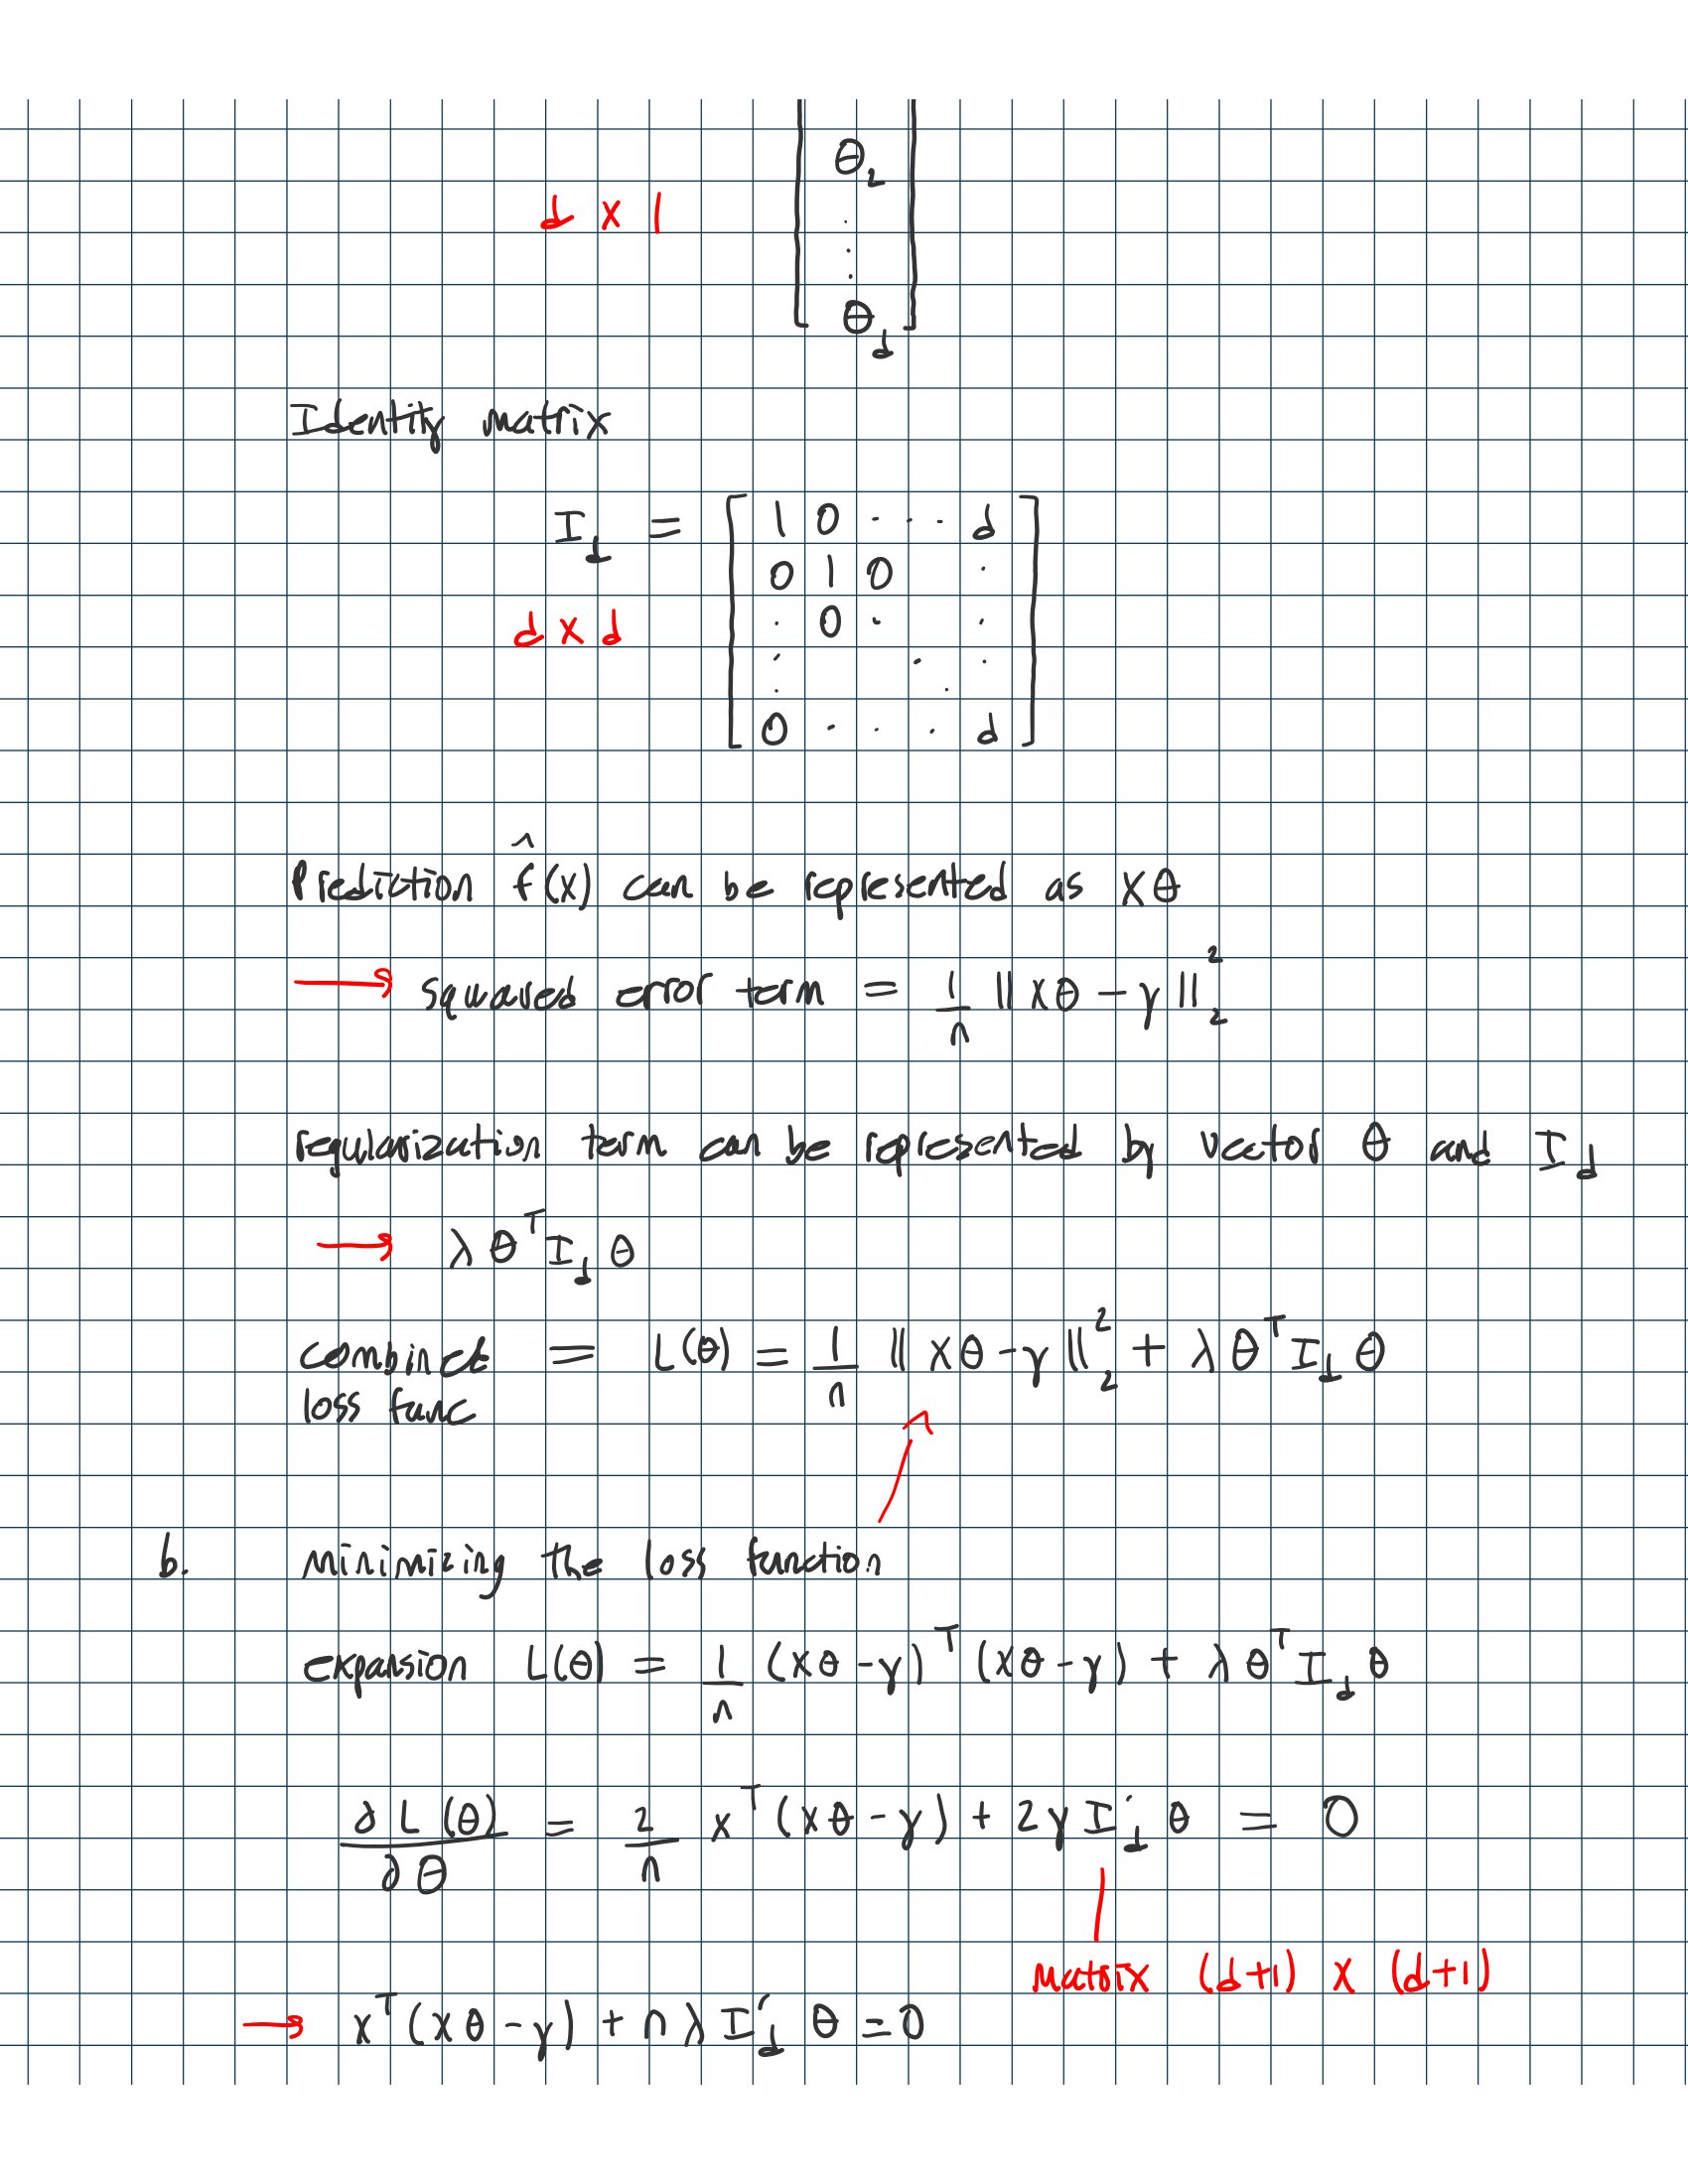 θ₂
d × 1
.
.
.
θ_d
Identity matrix
I_d = [ 1 0 · · · d
0 1 0 .
d × d
. 0 . .
. . .
. .
0 · · · d ]
Prediction f̂(x) can be represented as Xθ
→ squared error term = 1/n ||Xθ - y||₂²
regularization term can be represented by vector θ and I_d
→ λ θᵀ I_d θ
combined = L(θ) = 1/n ||Xθ - y||₂² + λ θᵀ I_d θ
loss func
b. minimizing the loss function
expansion L(θ) = 1/n (Xθ - y)ᵀ (Xθ - y) + λ θᵀ I_d θ
∂L(θ)/∂θ = 2/n Xᵀ (Xθ - y) + 2γ I'_d θ = 0
matrix (d+1) × (d+1)
→ Xᵀ (Xθ - y) + nλ I'_d θ = 0